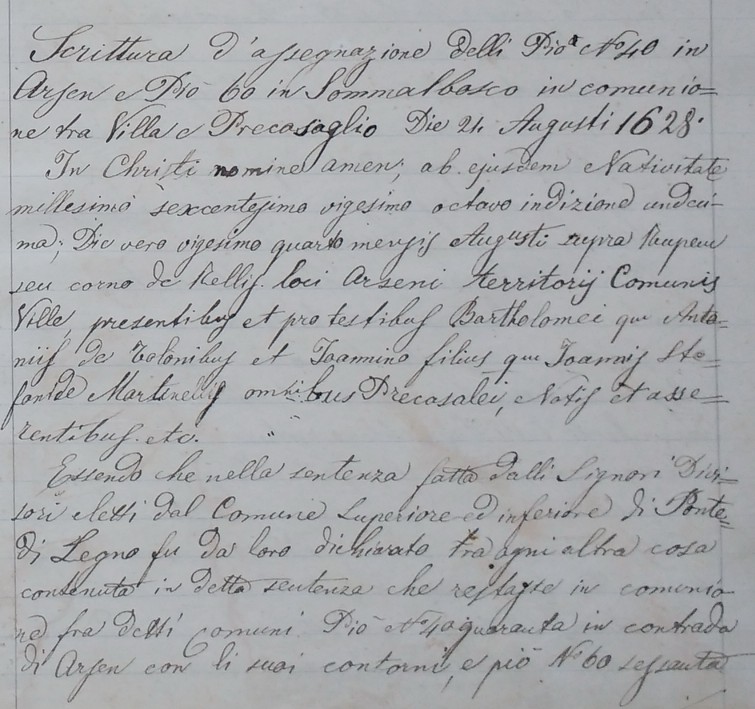 Scrittura d'assegnazione delli Pio N.° 40 in
Arsen e Pio 60 in Sommalbosco in comunio=
ne tra Villa e Precasaglio Die 24 Augusti 1628.
In Christi nomine amen; ab ejusdem Nativitate
millesimo sexcentesimo vigesimo octavo indizione undeci-
ma; Die vero vigesimo quarto mensis Augusti supra Rupem
seu corno de Rellis loci Arseni territorij Comunis
Ville, presentibus et pro testibus Bartholomei qm Anto=
niis de Tolonibus et Joannino filius qm Joannis Ste=
fani de Martinellis omnibus Precasalei, Notis et asse=
rentibus. etc.
Essendo che nella sentenza fatta dalli Signori Divi=
sori eletti dal Comune Superiore ed inferiore di Ponte=
di Legno fu da loro dichiarato tra ogni altra cosa
contenuta in detta sentenza che restasse in comunio
ne fra detti comuni Pio N° 40 quaranta in contrada
di Arsen con li suoi contorni, e pio N° 60 sessanta